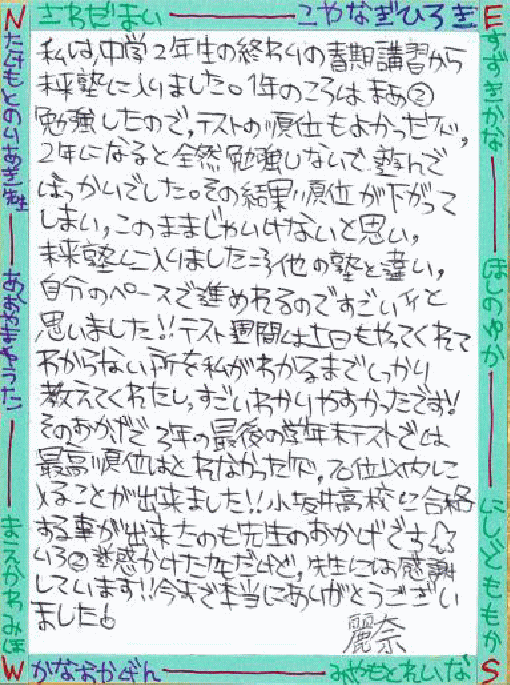 N さわだまい こやなぎひろき E
たけもとのりあき先生
あおやまきょうた
まえがわみほ
すずきかな
ほしのゆか
にしどももか
私は、中学2年生の終わりの春期講習から
未来塾に入りました。1年のころは まあ②
勉強したので、テストの順位もよかったが、
2年になると全然勉強しないで 遊んで
ばっかいでした。その結果、順位が下がって
しまい、このままじゃいけないと思い、
未来塾に入りました 他の塾と違い、
自分のペースで進めれるのですごいイイと
思いました!!テスト週間は土日もやってくれて
わからない所を私がわかるまでしっかり
教えてくれたし、すごいわかりやすかったです!
そのおかげで 3年の最後の学年末テストでは
最高順位はとれなかったが、70位以内に
入ることが出来ました!!小坂井高校に合格
する事が出来たのも先生のおかげです☆
いろ②迷惑かけたケド、先生には感謝
しています!!今まで本当にありがとうござい
ました
麗奈
W かなおかけん みやもとれいな S